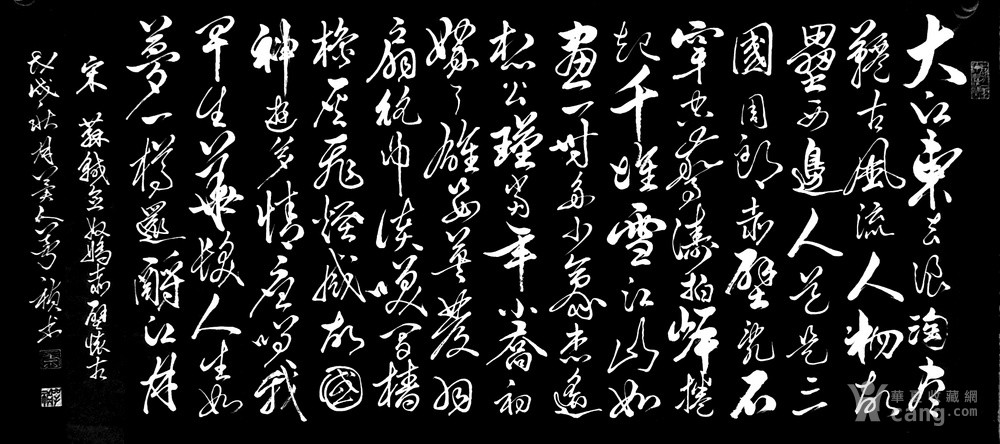 大江東去浪淘盡
韆古風流人物故
壘西邊人道是三
國周郎赤壁亂石
穿空驚濤拍岸捲
起千堆雪江山如
畫一時多少豪杰遙
想公瑾當年小喬初
嫁了雄姿英發羽
扇綸巾談笑間檣
櫓灰飛煙滅故國
神遊多情應笑我
早生華髮人生如
夢一樽還酹江月
宋 蘇軾念奴嬌赤壁懷古
戊戌秋月
華夏收藏網
cang.com